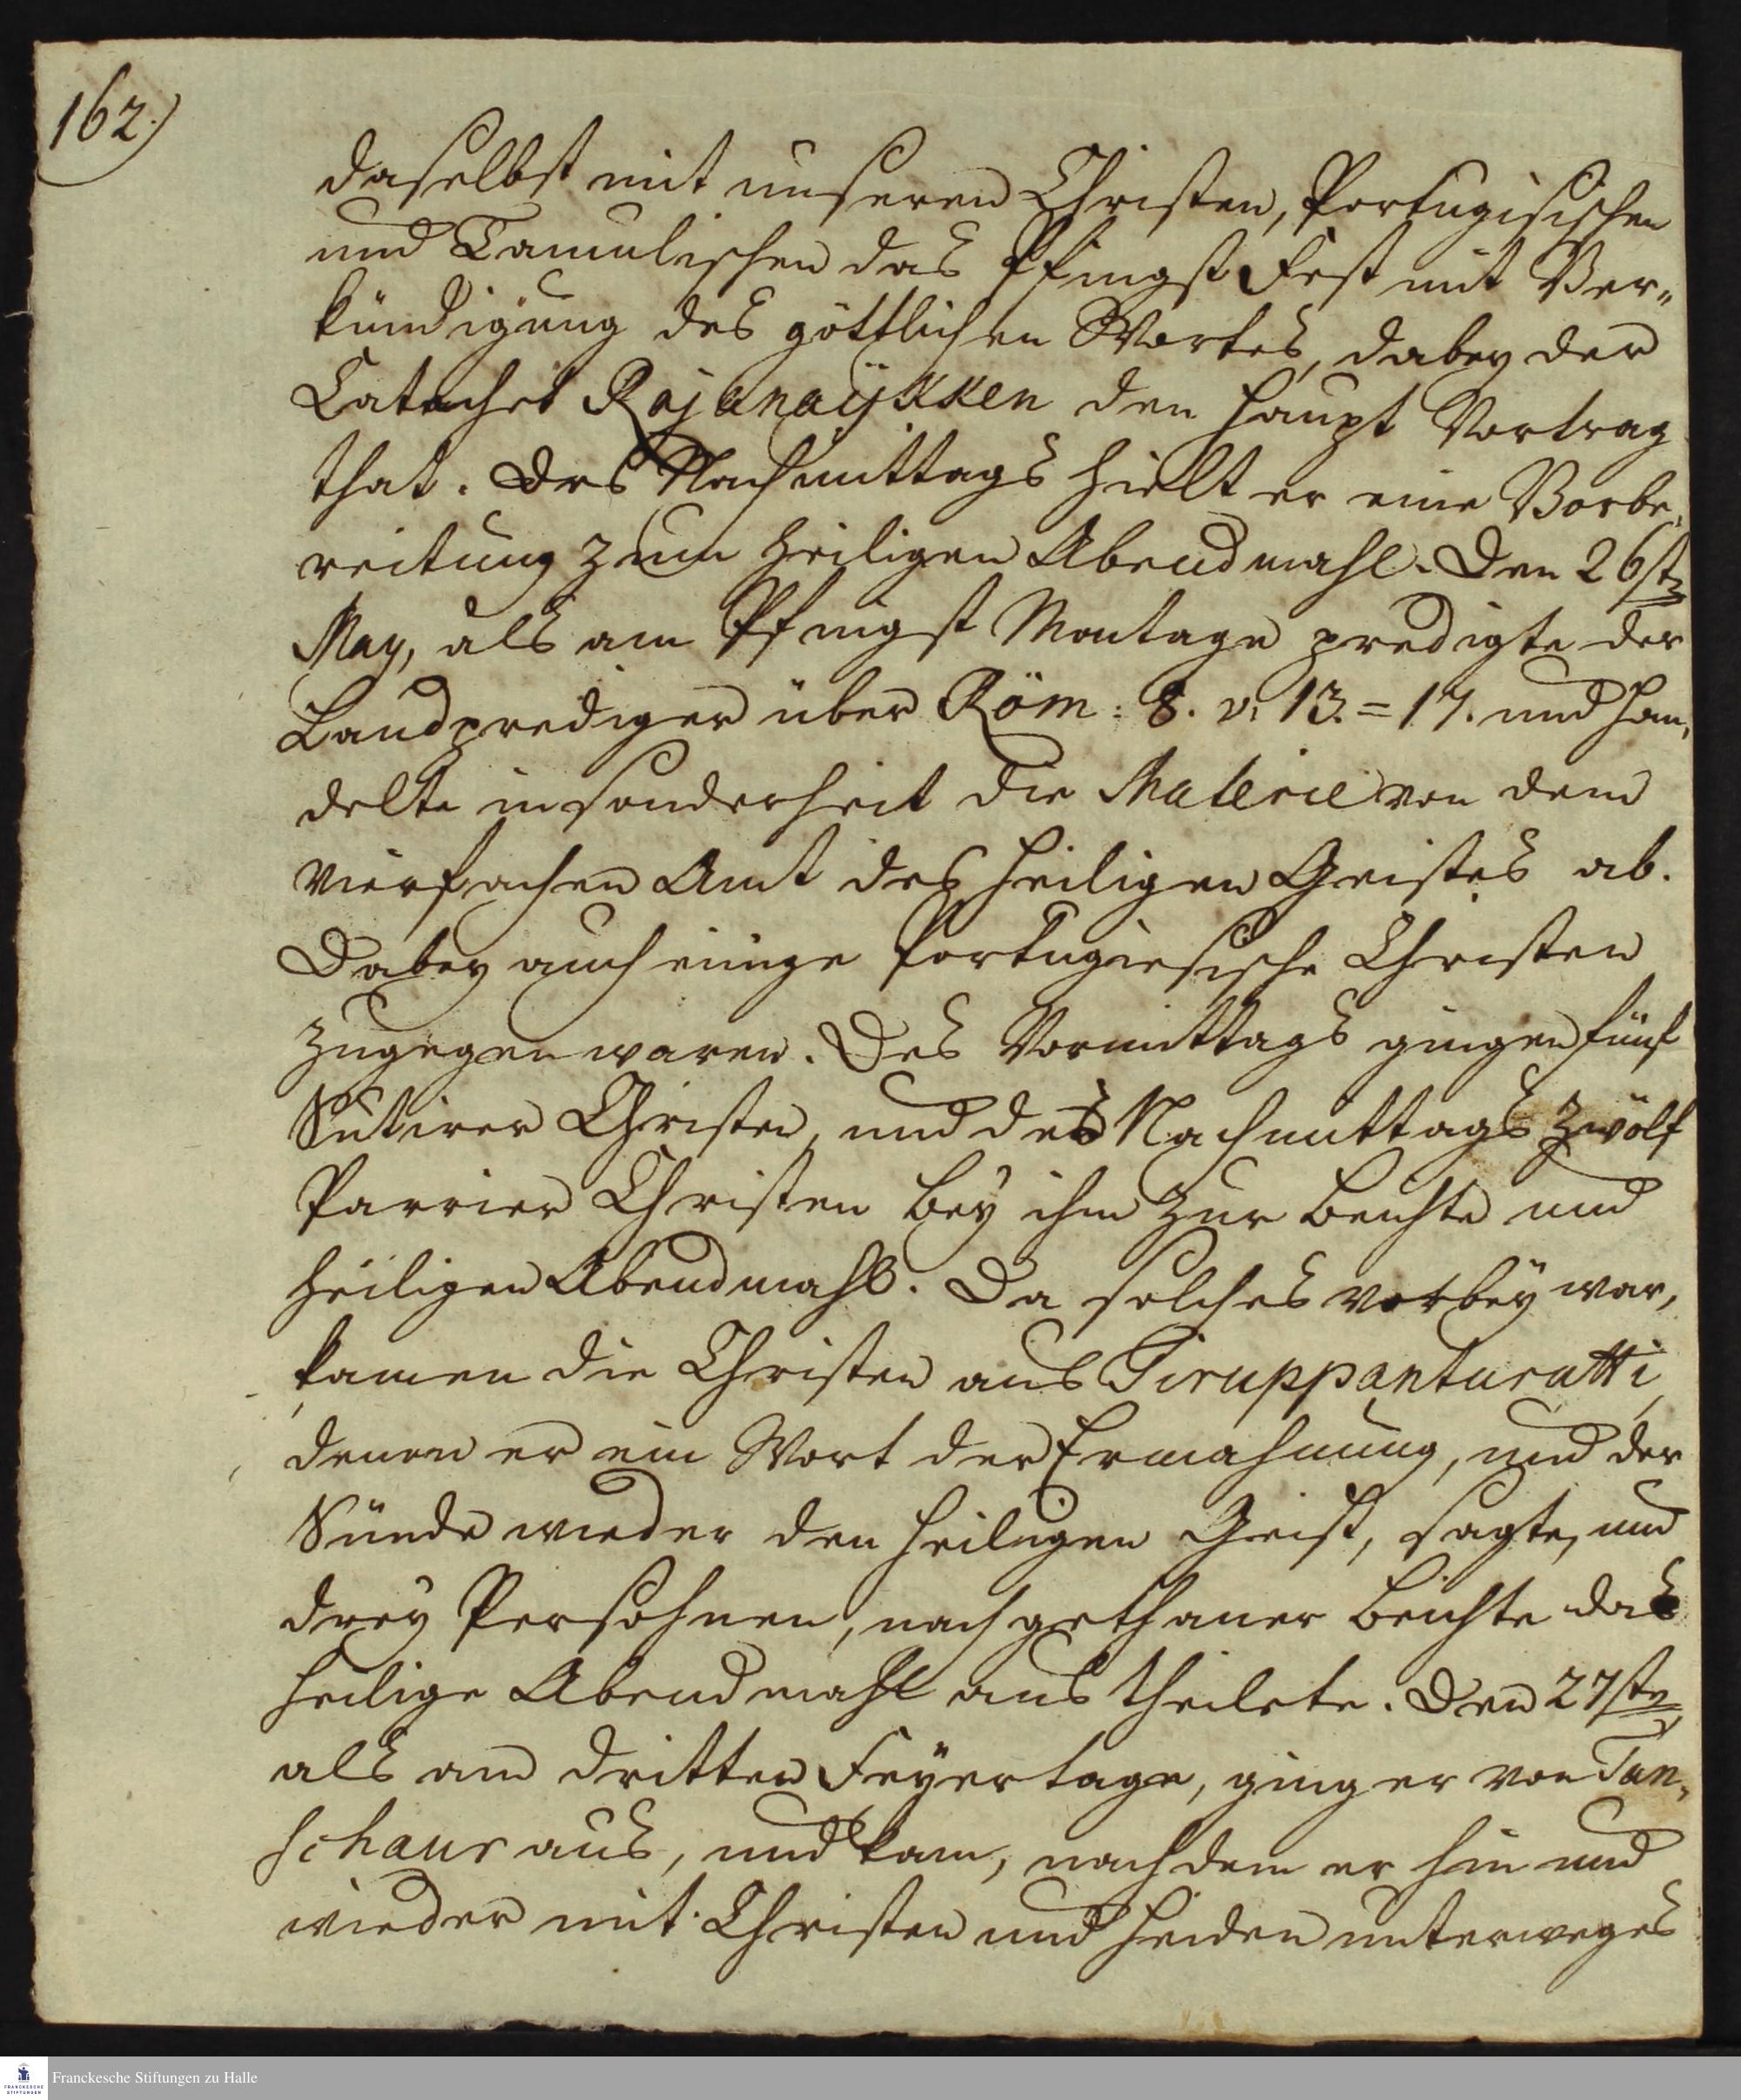 162.)
daselbst mit unseren Christen, Portugisischen
und Tamulischen das Pfingst Fest mit Ver„
kündigung des göttlichen Wortes, dabey der
Catechet Rajanaÿkken den Haupt Vortrag
that. Des Nachmittags hielt er eine Vorbe„
reitung zum heiligen Abendmahl. Den 26st
May, als am Pfingst Montage predigte der
Landprediger über Röm: 8. v. 13.=17. und han„
delte insonderheit die Materie von dem
vierfachen Amt des heiligen Geistes ab.
Dabey auch einige portugiesische Christen
zugegen waren. Des Vormittags gingen fünf
Sutirer Christen, und des Nachmittags zwölf
Parrier Christen bey ihm zur Beichte und
heiligen Abendmahl. Da solches vorbey war,
kamen die Christen aus Tiruppanturutti,
denen er ein Wort der Ermahnung, und der
Sünde wieder den heiligen Geist, sagte, und
drey Persohnen, nach gethaner Beichte das
heilige Abendmahl aus theilete. Den 27ste,
als am dritten Feyertage, ging er von Tan„
schaur aus, und kam, nachdem er hin und
wieder mit Christen und Heiden unterweges
Franckesche Stiftungen zu Halle
FRANCKESCHE
STIFTUNGEN